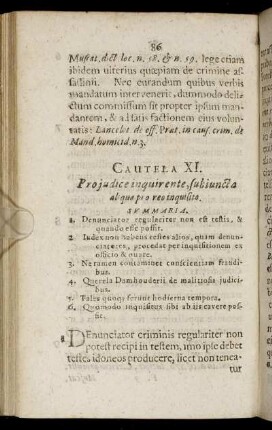 86
Muscat. dict. loc. n. 58. & n. 59. lege etiam
ibidem ulterius quæpiam de crimine as-
sassinii. Nec curandum quibus verbis
mandatum intervenerit, dummodo deli-
ctum commissum sit propter ipsum man-
dantem, & ad satisfactionem ejus volun-
tatis: Lancelot. de off. Præt. in caus. crim. de
Mand. homicid. n. 3.
CAUTELA XI.
Pro judice inquirente, subiuncta
aliqua pro reo inquisito.
SUMMARIA.
1. Denunciator regulariter non est testis, &
quando esse possit.
2. Iudex non habens testes alios, quam denun-
ciatores, procedat per inquisitionem ex
officio & quate.
3. conscientiis fraudi-
bus.
4. Querela Damhouderii de malitiosis judici-
bus.
5. Tales quoque ferunt hodierna tempora.
6. Quomodo inquisitus sibi ab his cavere pos-
sit.
DEnunciator criminis regulariter non
potest recipi in testem, imo ipse debet
testes idoneos producere, licet non tenea-
tur